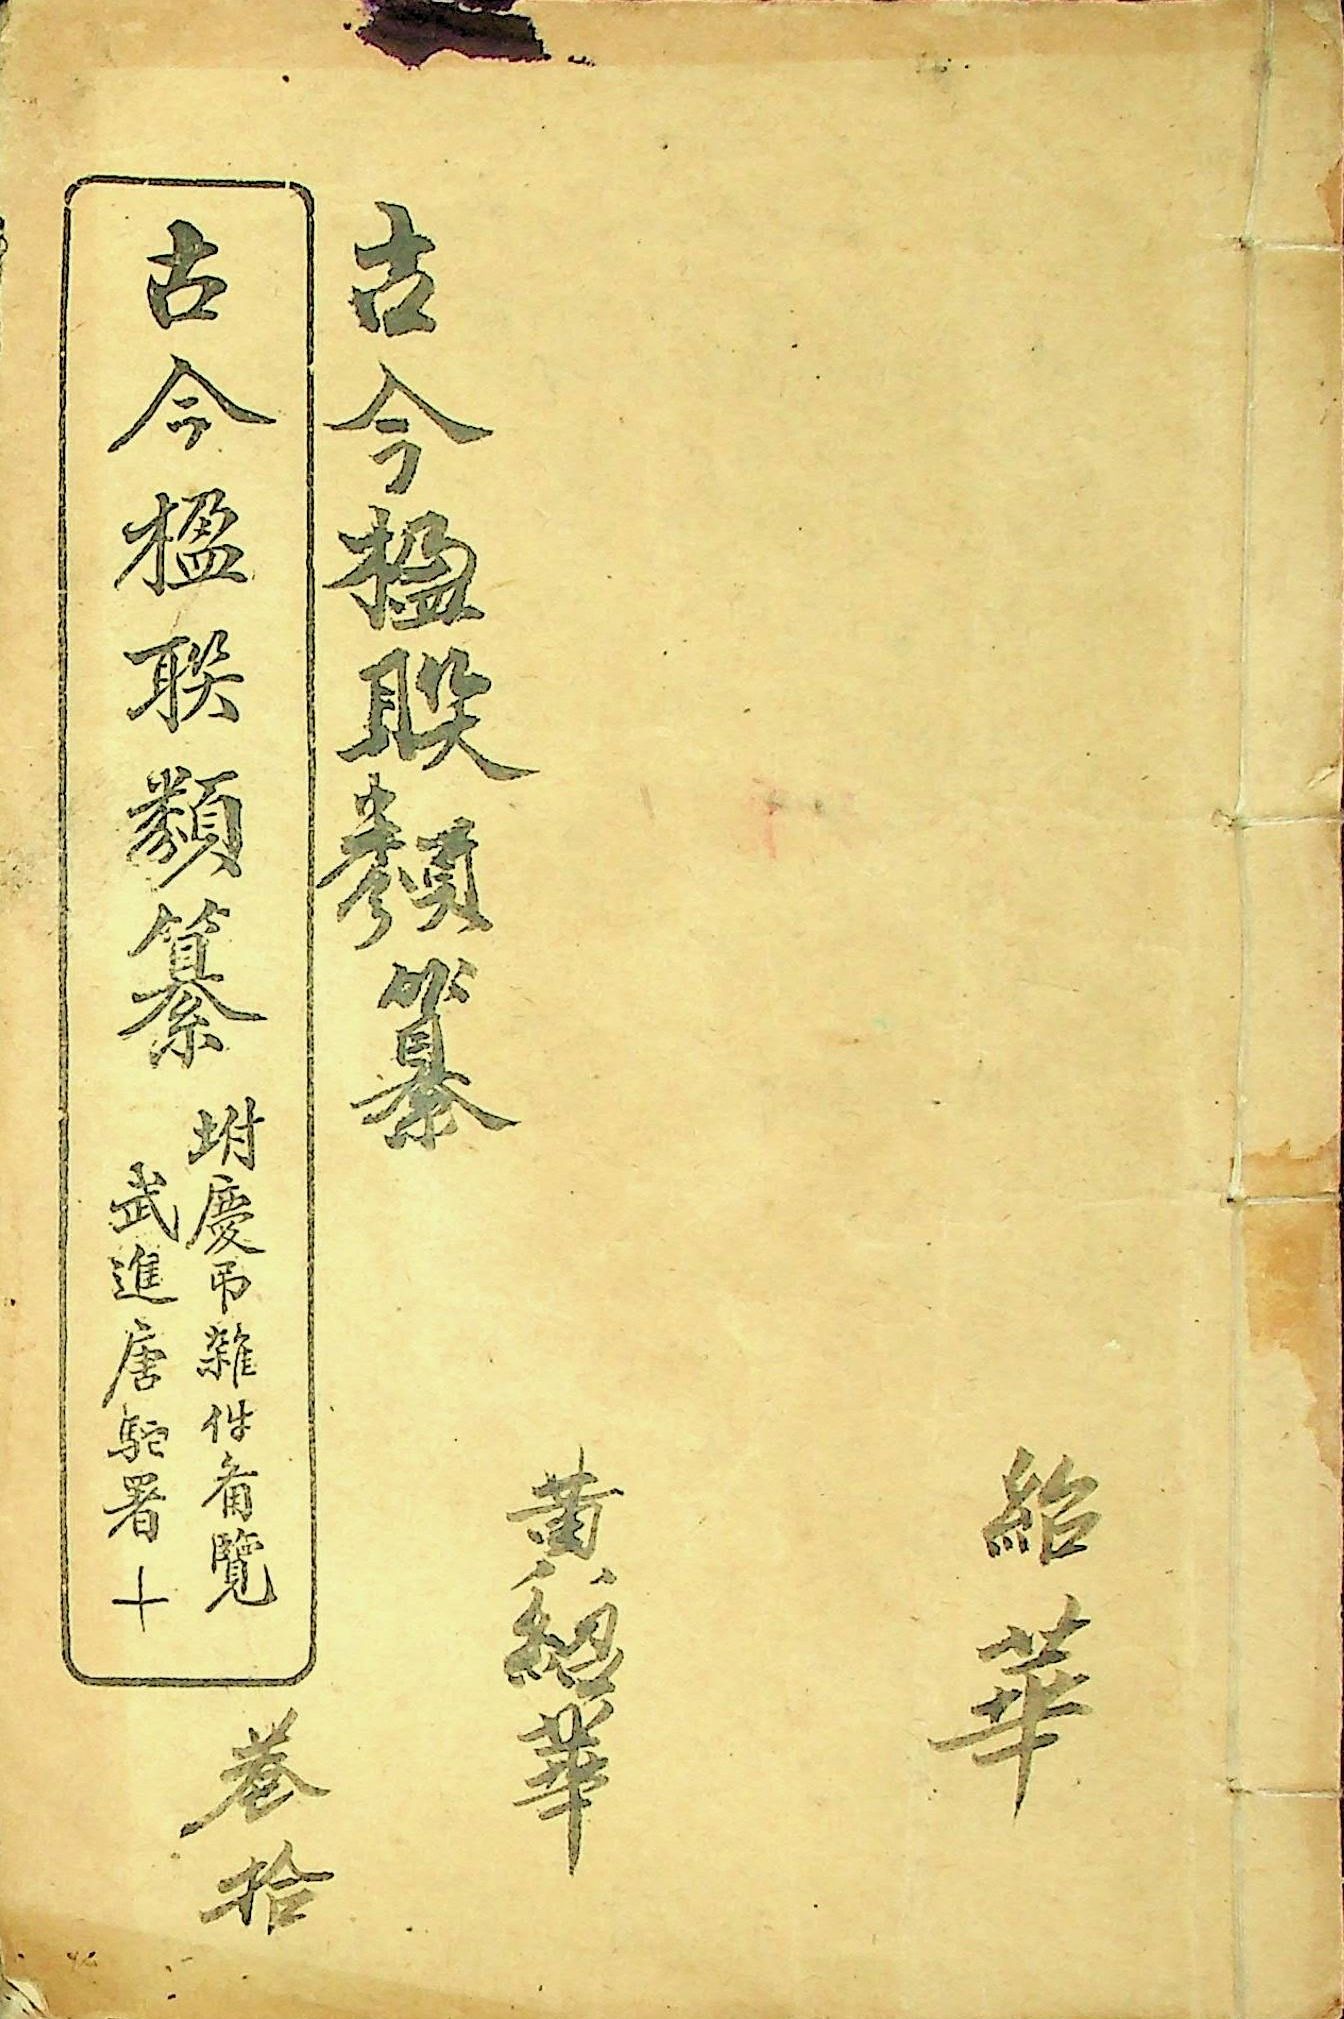 紹華
黃紹華
古今楹联類纂
古今楹联類纂
坿慶弔雜件俻覽
武進唐駝署 十
卷拾